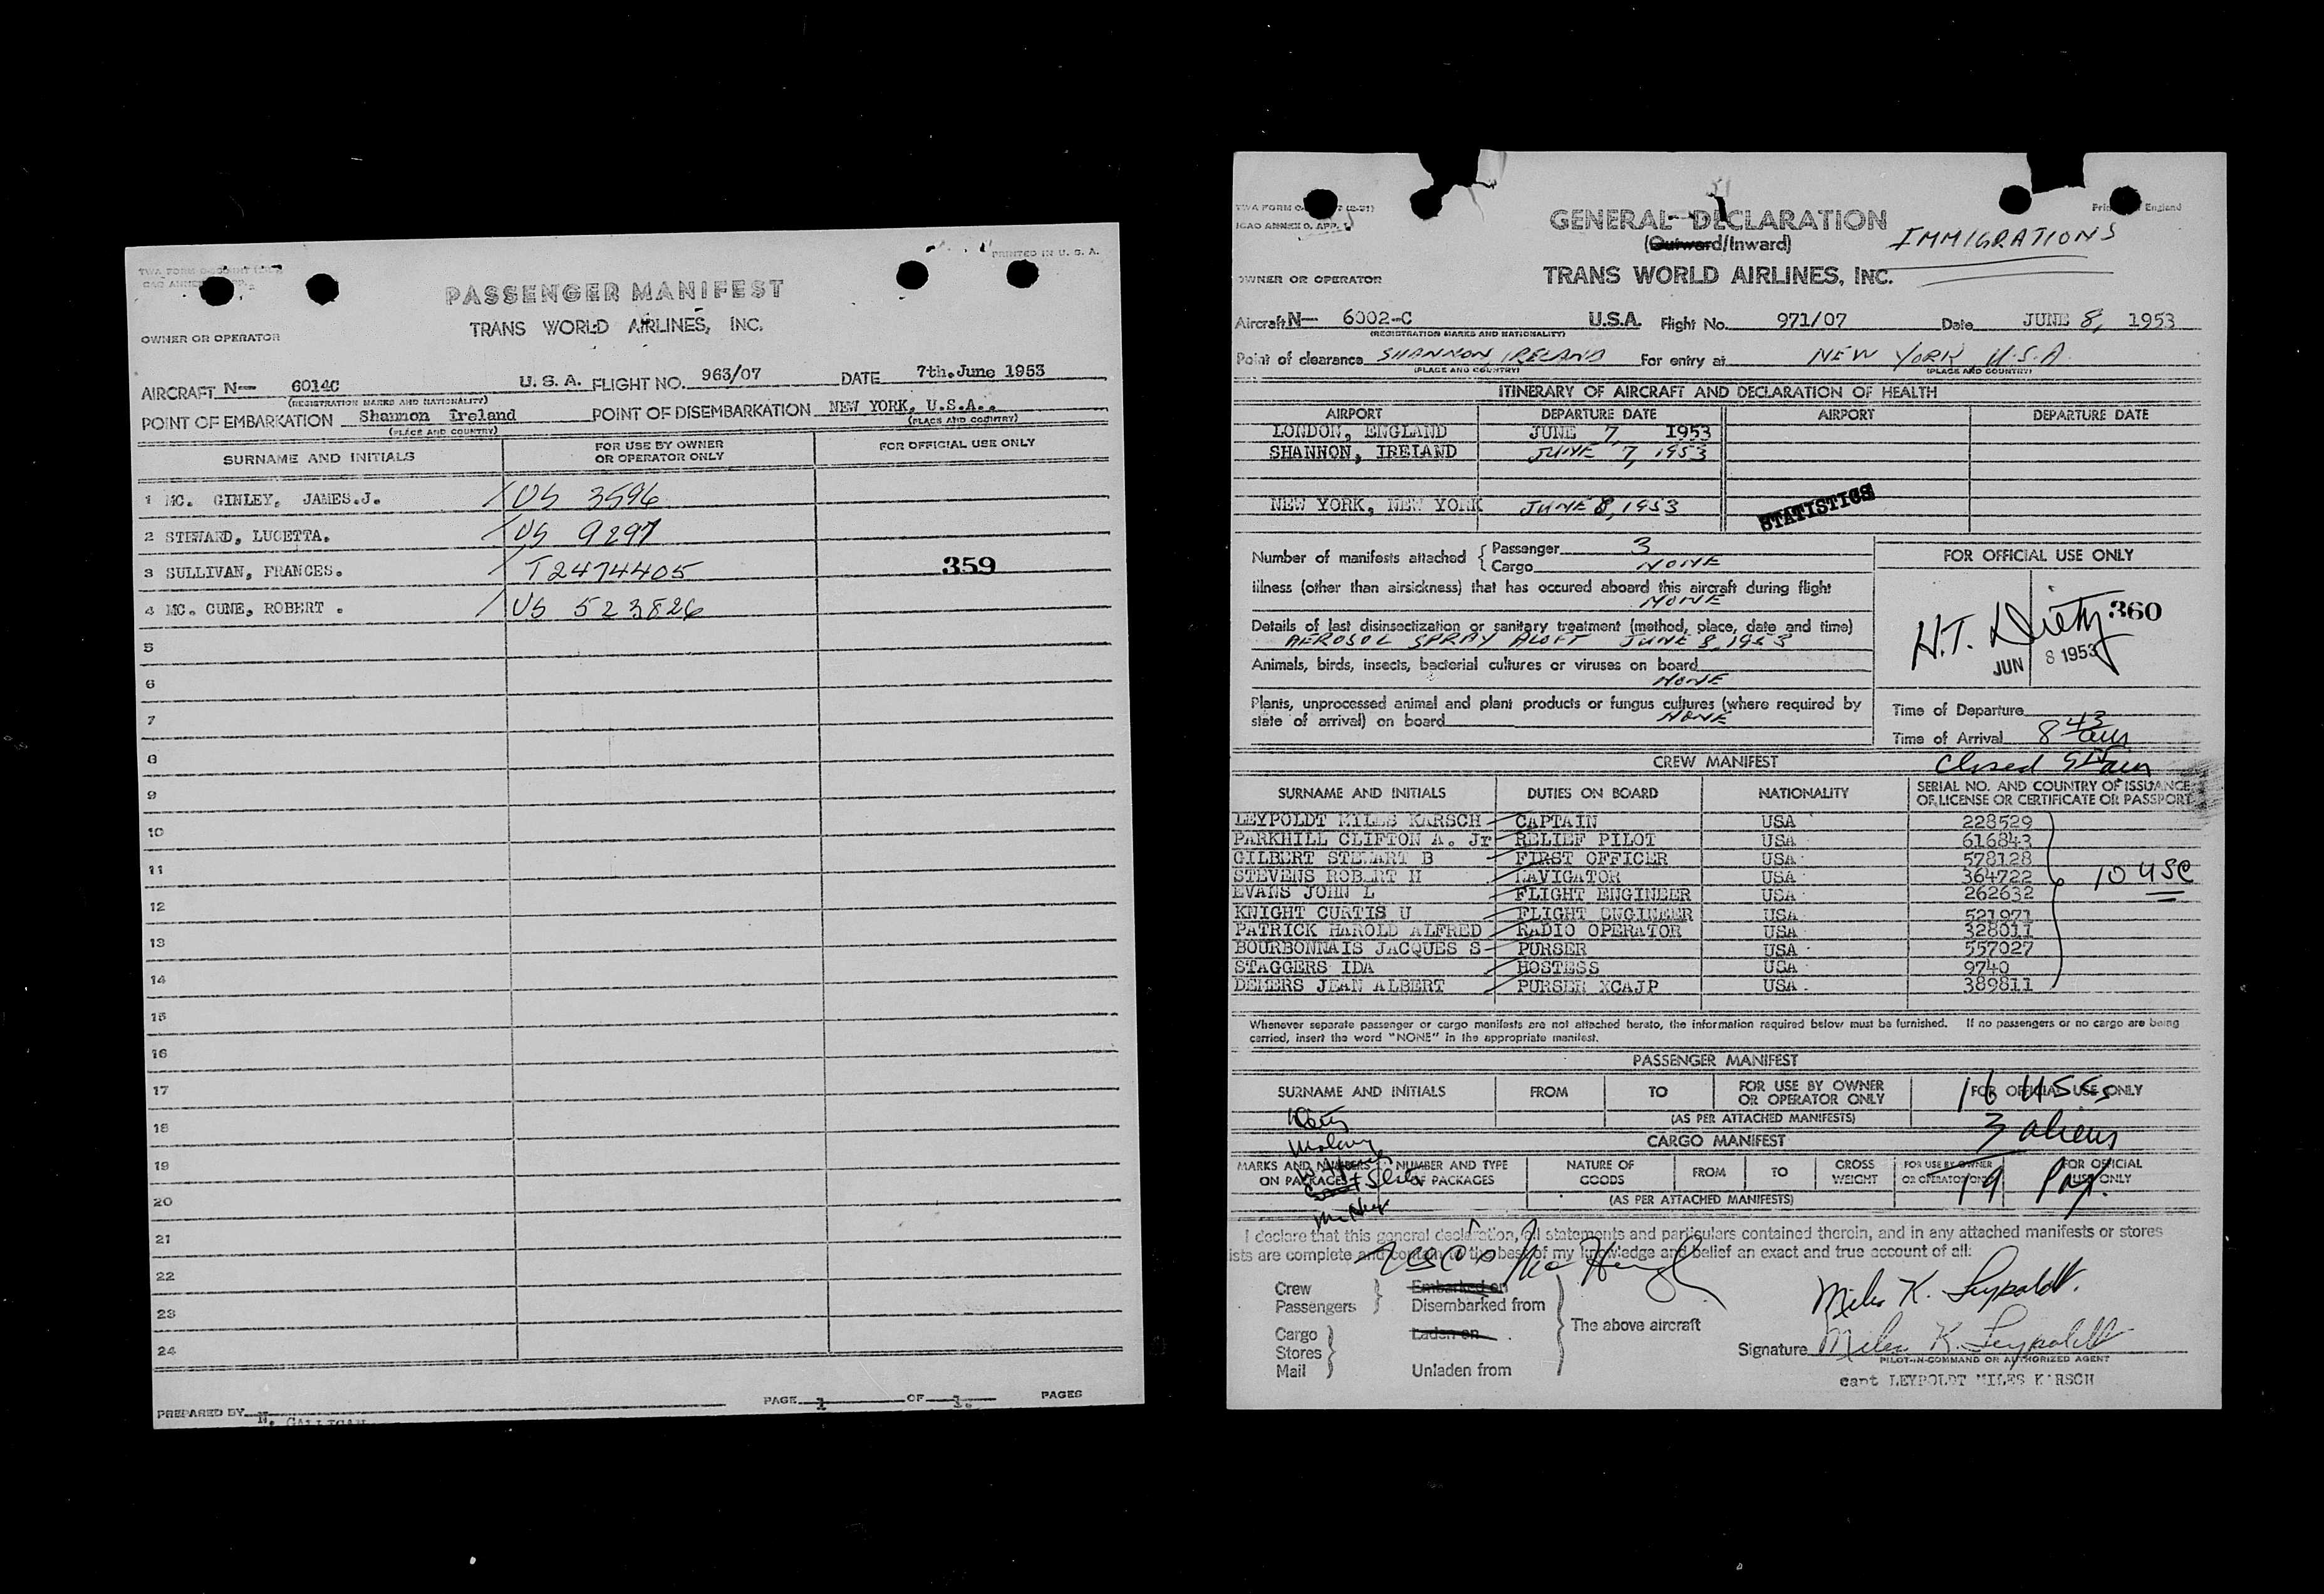 PRINTED IN U. S. A.
PASSENGER MANIFEST
TRANS WORLD AIRLINES, INC.
OWNER OR OPERATOR
AIRCRAFT N— 6014C U. S. A. FLIGHT NO. 963/07 DATE 7th. June 1953
(REGISTRATION MARKS AND NATIONALITY)
POINT OF EMBARKATION Shannon Ireland POINT OF DISEMBARKATION NEW YORK, U.S.A..
(PLACE AND COUNTRY) (PLACE AND COUNTRY)
SURNAME AND INITIALS FOR USE BY OWNER OR OPERATOR ONLY FOR OFFICIAL USE ONLY
1 MC. GINLEY, JAMES.J. / US 3596
2 STEWARD, LUCETTA. / US 9297
3 SULLIVAN, FRANCES. / T2474405 359
4 MC. CUNE, ROBERT . / US 523826
5
6
7
8
9
10
11
12
13
14
15
16
17
18
19
20
21
22
23
24
PREPARED BY N. GALLIGAN PAGE 1 OF 1. PAGES
TWA FORM
ICAO ANNEX 9, APP. England
GENERAL DECLARATION
(Outward/Inward) IMMIGRATIONS
OWNER OR OPERATOR TRANS WORLD AIRLINES, INC.
Aircraft N— 6002-C U.S.A. Flight No. 971/07 Date JUNE 8, 1953
(REGISTRATION MARKS AND NATIONALITY)
Point of clearance SHANNON, IRELAND For entry at NEW YORK U.S.A.
(PLACE AND COUNTRY) (PLACE AND COUNTRY)
ITINERARY OF AIRCRAFT AND DECLARATION OF HEALTH
AIRPORT DEPARTURE DATE AIRPORT DEPARTURE DATE
LONDON, ENGLAND JUNE 7, 1953
SHANNON, IRELAND JUNE 7, 1953
NEW YORK, NEW YORK JUNE 8, 1953 STATISTICS
Number of manifests attached { Passenger 3
Cargo NONE
FOR OFFICIAL USE ONLY
Illness (other than airsickness) that has occured aboard this aircraft during flight
NONE
Details of last disinsectization or sanitary treatment (method, place, date and time)
AEROSOL SPRAY ALOFT JUNE 8, 1953
H.T. Diety 360
JUN 8 1953
Animals, birds, insects, bacterial cultures or viruses on board
NONE
Plants, unprocessed animal and plant products or fungus cultures (where required by
state of arrival) on board NONE
Time of Departure
Time of Arrival 8 43 am
CREW MANIFEST Closed
SURNAME AND INITIALS DUTIES ON BOARD NATIONALITY SERIAL NO. AND COUNTRY OF ISSUANCE OF LICENSE OR CERTIFICATE OR PASSPORT
LEYPOLDT MILES KARSCH CAPTAIN USA 228529
PARKHILL CLIFTON A. Jr RELIEF PILOT USA 616843
GILBERT STEWART B FIRST OFFICER USA 578128
STEVENS ROBERT H NAVIGATOR USA 364722 10 USC
EVANS JOHN L FLIGHT ENGINEER USA 262632
KNIGHT CURTIS U FLIGHT ENGINEER USA 521971
PATRICK HAROLD ALFRED RADIO OPERATOR USA 328011
BOURBONNAIS JACQUES S PURSER USA 557027
STAGGERS IDA HOSTESS USA 9740
DEMERS JEAN ALBERT PURSER XCAJP USA 389811
Whenever separate passenger or cargo manifests are not attached hereto, the information required below must be furnished. If no passengers or no cargo are being
carried, insert the word "NONE" in the appropriate manifest.
PASSENGER MANIFEST
SURNAME AND INITIALS FROM TO FOR USE BY OWNER OR OPERATOR ONLY FOR OFFICIAL USE ONLY
16
(AS PER ATTACHED MANIFESTS)
3 aliens
CARGO MANIFEST
MARKS AND NUMBERS ON PACKAGES NUMBER AND TYPE OF PACKAGES NATURE OF GOODS FROM TO GROSS WEIGHT FOR USE BY OWNER OR OPERATOR ONLY FOR OFFICIAL USE ONLY
19 Pax.
(AS PER ATTACHED MANIFESTS)
I declare that this general declaration, all statements and particulars contained therein, and in any attached manifests or stores
ists are complete and contain to the best of my knowledge and belief an exact and true account of all:
Crew Embarked on
Passengers } Disembarked from
The above aircraft
Cargo Laden on
Stores
Mail } Unladen from
Miles K. Leypoldt.
Signature Miles K. Leypoldt
PILOT-IN-COMMAND OR AUTHORIZED AGENT
capt LEYPOLDT MILES KARSCH